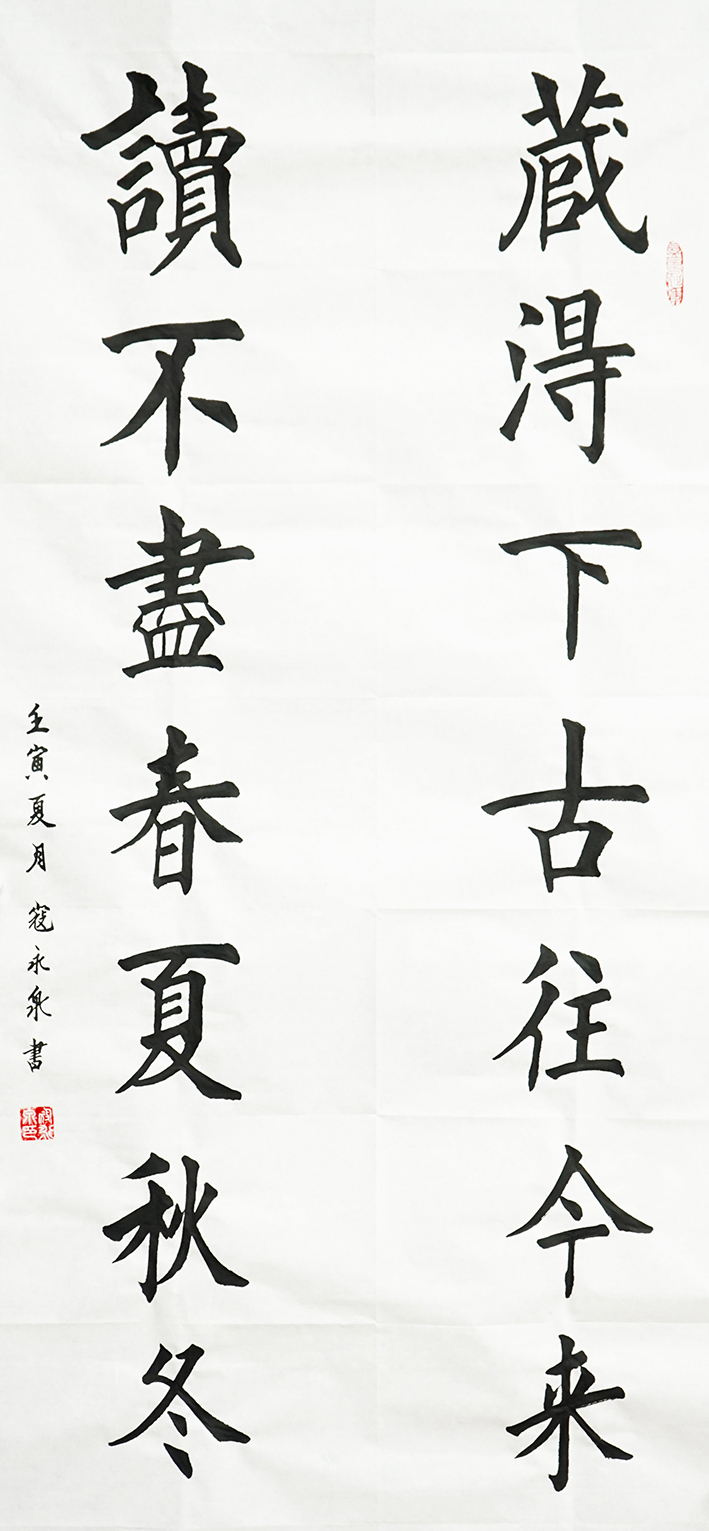 藏得下古往今来
讀不盡春夏秋冬
壬寅夏月 寇永泉書